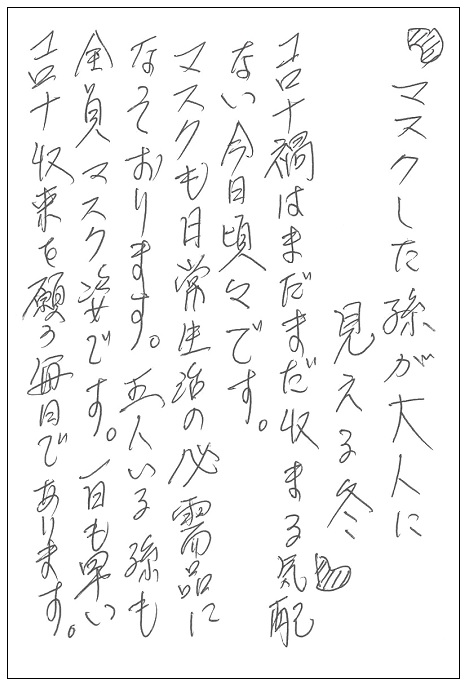 マスクした孫が大人に
見える冬
コロナ禍はまだまだ収まる気配
ない今日頃々です。
マスクも日常生活の必需品に
なそおります。五人いる孫も
全員マスク姿です。一日も早い
コロナ収束を願う毎日であります。